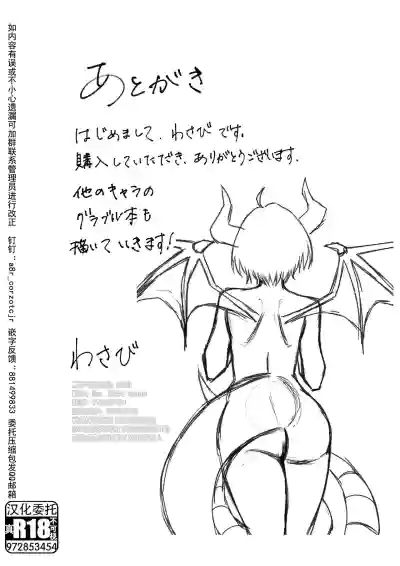 あとがき
はじめまして、わさびです。
購入していただき、ありがとうございます。
他のキャラの
グラブル本も
描いていきます!
わさび
如内容有误或不小心遗漏可加群联系管理员进行改正 钉钉:a8r_oarzotcjr 嵌字反馈:881499833 委托压缩包发QQ邮箱
汉化委托
R18
972853454